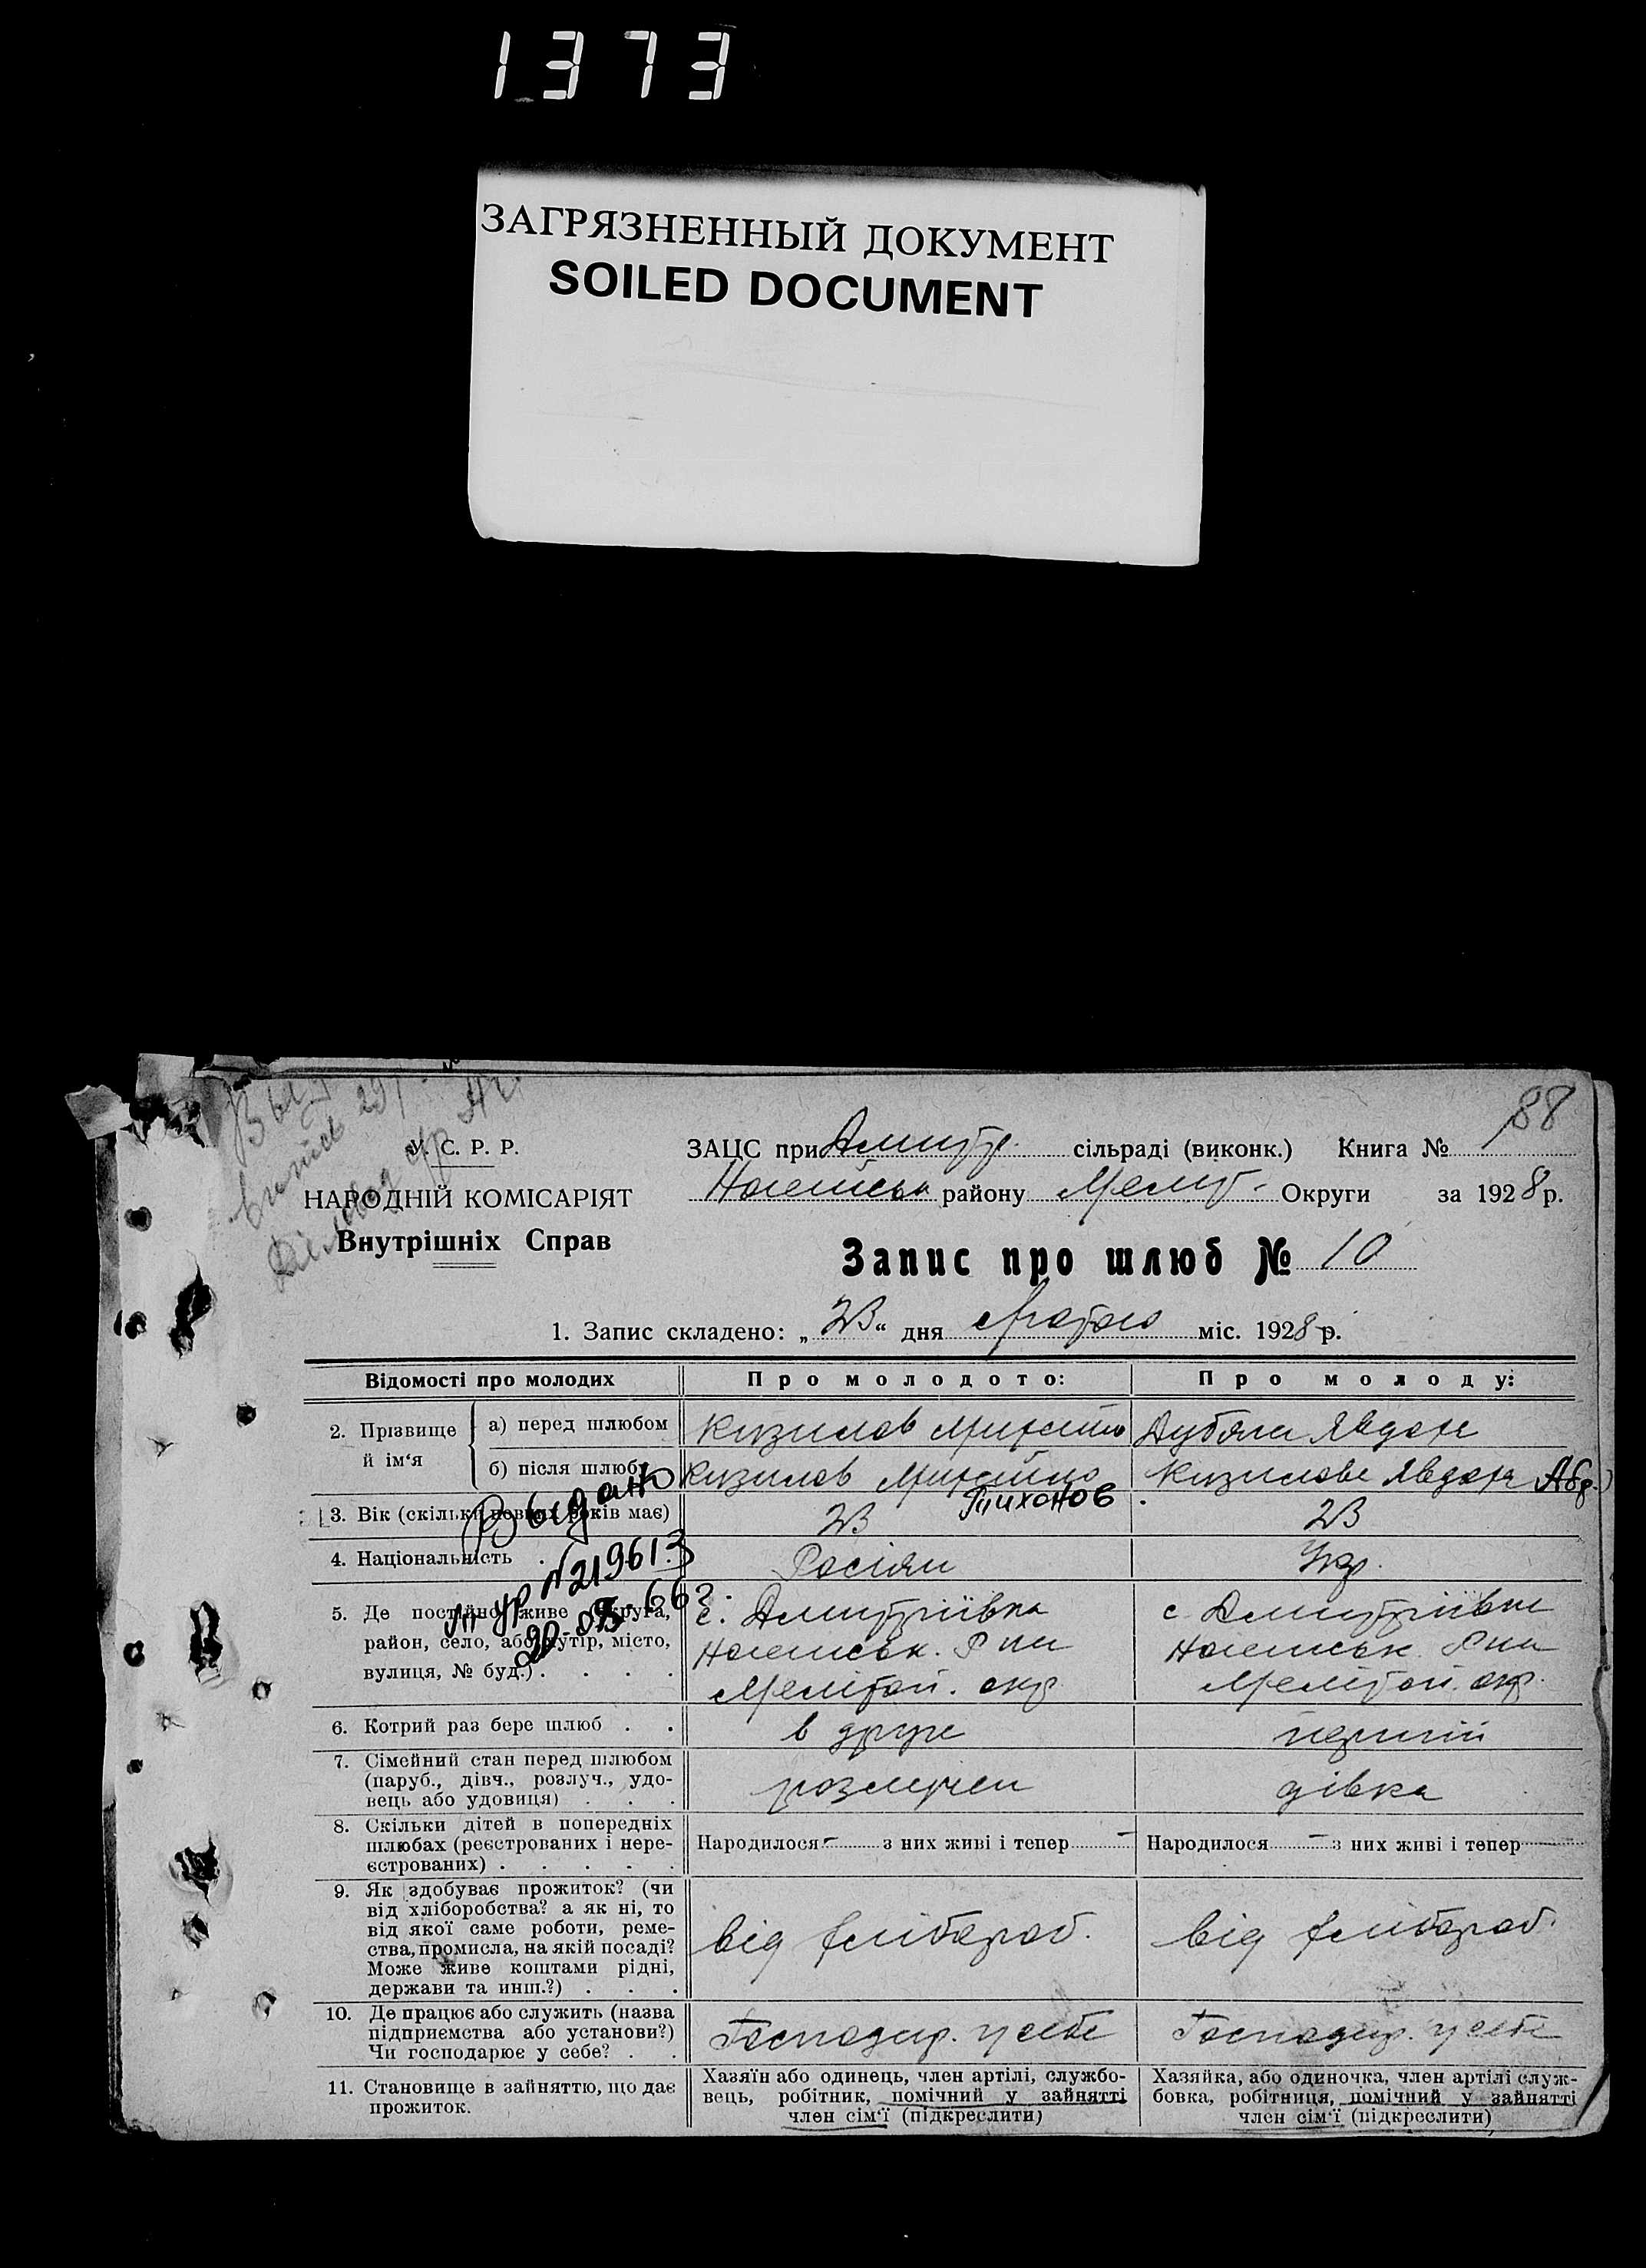 1373
ЗАГРЯЗНЕННЫЙ ДОКУМЕНТ
SOILED DOCUMENT
88
У. С. Р. Р.
НАРОДНІЙ КОМІСАРІЯТ
Внутрішніх Справ
ЗАЦС при Дмитр. сільраді (виконк.) Книга №
району Меліт. Округи за 1928 р.
Запис про шлюб № 10
1. Запис складено: „23“ дня лютого міс. 1928 р.
Відомості про молодих
Про молодого:
Про молоду:
2. Прізвище й ім‘я
а) перед шлюбом
Кизилов Дубяга Явдоха
б) після шлюбу
Кизилов Кизилова Явдоха Абр.
Тихонов
Выдано
3. Вік (скільки повних років має)
23
23
4. Національність .
Росіян
Укр.
№219613
5. Де постійно живе (округа,
район, село, або хутір, місто,
вулиця, № буд.) . . . .
с. Дмитріївка
Р-ну
Меліտոп. окр
с Дмитріївка
Р-ну
Меліտոп. окр.
6. Котрий раз бере шлюб . .
в друге
перший
7. Сімейний стан перед шлюбом
(паруб., дівч., розлуч., удо-
вець або удовиця) . . .
розлучен
дівка
8. Скільки дітей в попередніх
шлюбах (реєстрованих і нере-
єстрованих) . . . . .
Народилося - з них живі і тепер -
Народилося - з них живі і тепер -
9. Як здобуває прожиток? (чи
від хліборобства? а як ні, то
від якої саме роботи, реме-
ства, промисла, на якій посаді?
Може живе коштами рідні,
держави та инш.?) . . .
від хлібороб.
від хлібороб.
10. Де працює або служить (назва
підприємства або установи?)
Чи господарює у себе? . .
Господар. у себе
Господар. у себе
11. Становище в зайняттю, що дає
прожиток.
Хазяїн або одинець, член артілі, службо-
вець, робітник, помічний у зайнятті
член сім‘ї (підкреслити)
Хазяйка, або одиночка, член артілі служ-
бовка, робітниця, помічний у зайнятті
член сім‘ї (підкреслити)